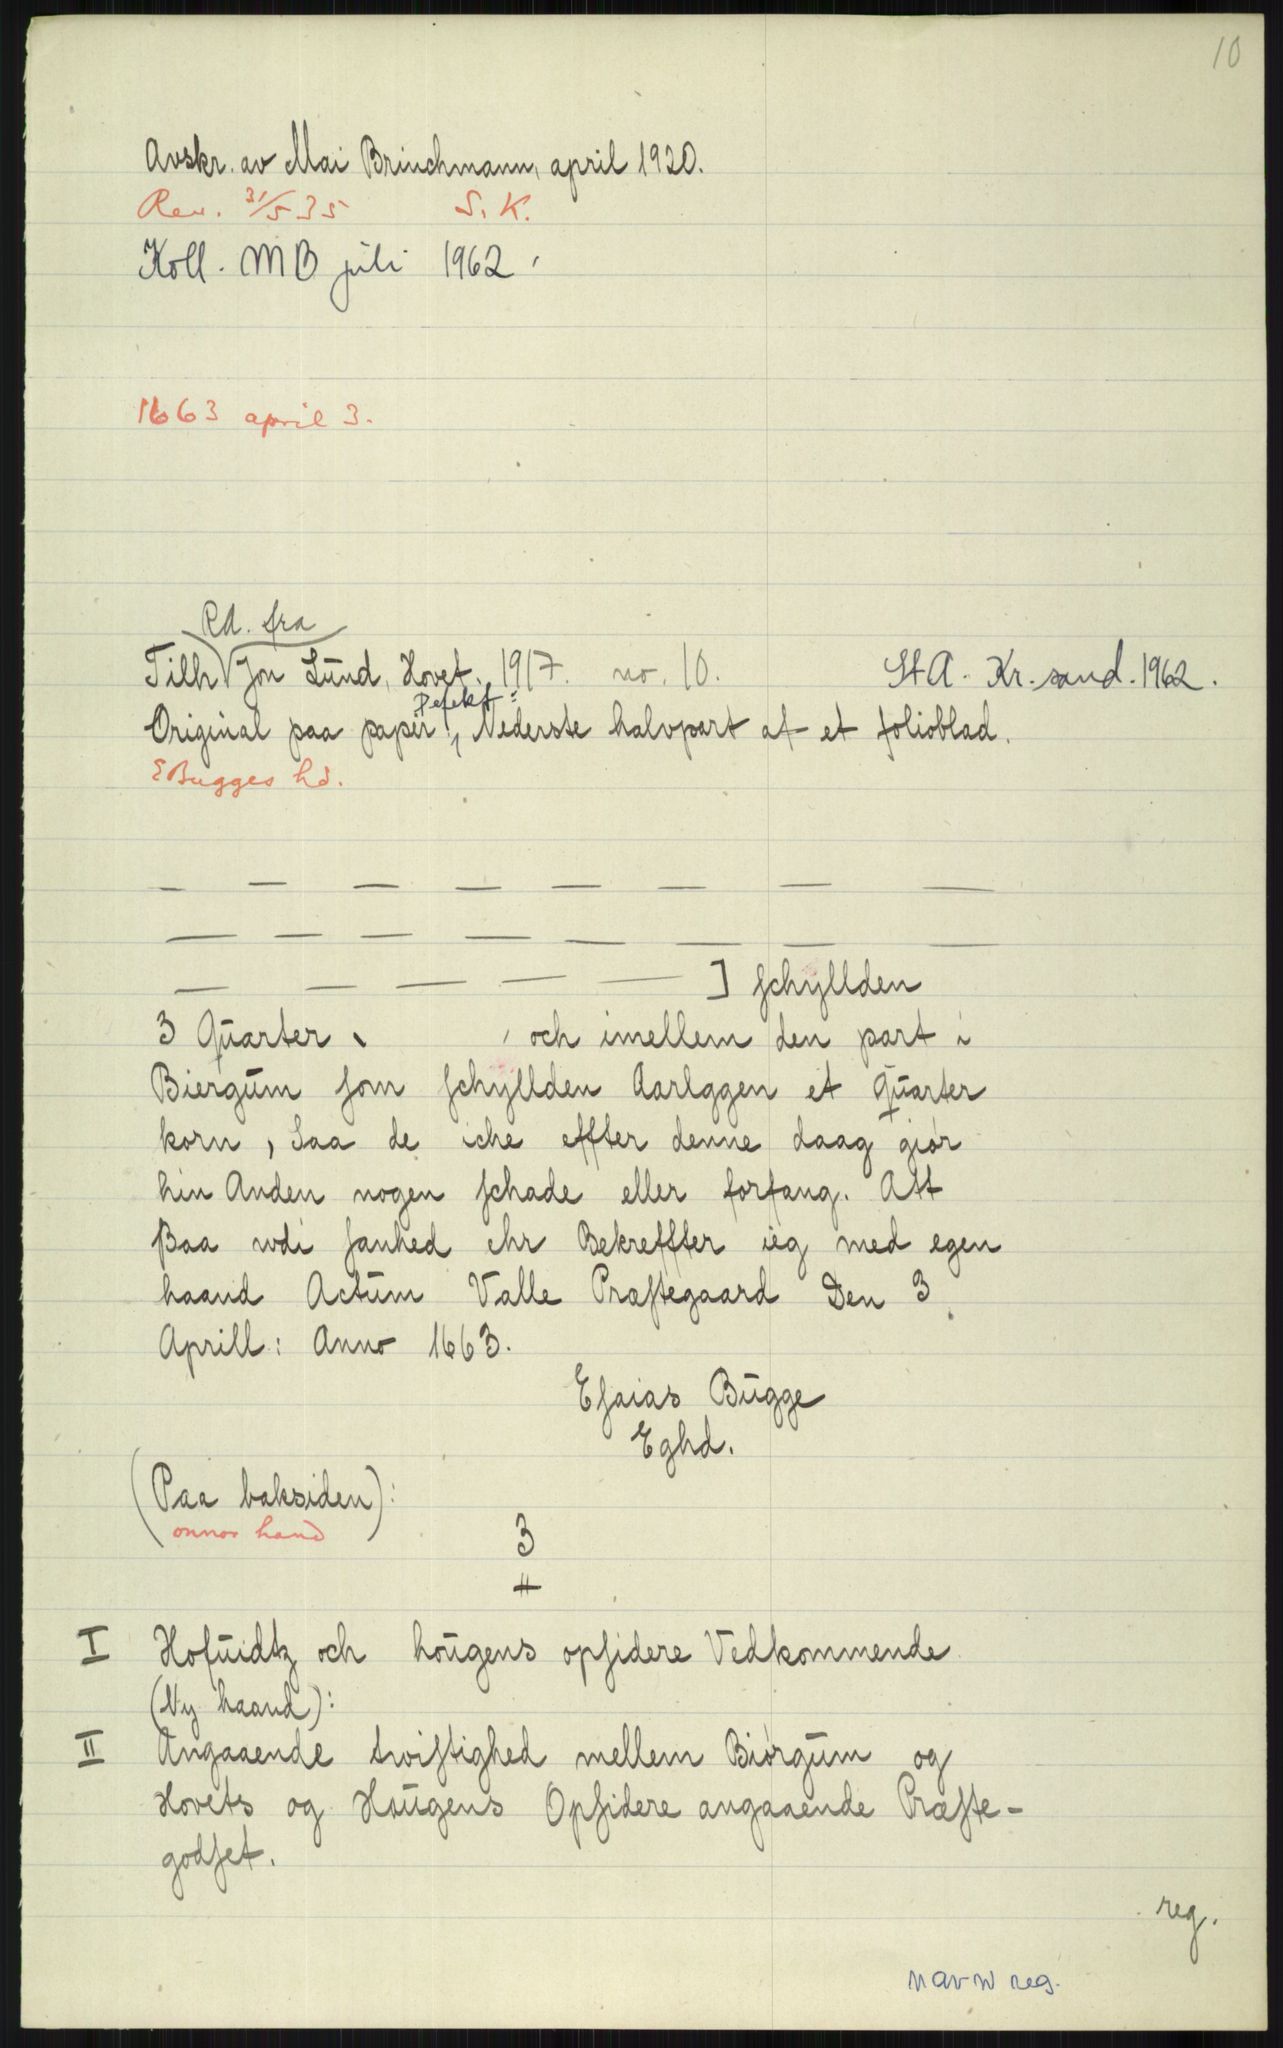 10
Avskr. av Mai Brinchmann, april 1920.
Rev. 31/5 35 S. K.
Koll. MB juli 1962.
1663 april 3.
Rd. fra
Tilh. Jon Lund, Hovet. 1917. no. 10. StA. Kr.sand. 1962.
Defekt:
Original paa papir, Nederste halvpart af et folioblad.
EBugges hd.
— — — — — — — —
— — — — — — — —
— — — — — ] ſchyllden
3 Quarter och imellem den part i
Biergum ſom ſchyllden Aarlggen et Quarter
korn, Saa de iche effter denne daag giør
hin Anden nogen ſchade eller forfang. Att
ßaa wdi ſanhed ehr Bekreffter ieg med egen
haand Actum Valle Præſtegaard Den 3
Aprill: Anno 1663.
Eſaias Bugge
Eghd.
(Paa baksiden):
onnor hand
3
#
I Hofuidtz och hougens opſidere Vedkommende
(Ny haand):
II Angaaende twiſtighed mellem Biørgum og
Hovets og Hougens Opſidere angaaende Præſte-
godſet.
reg.
navn reg.